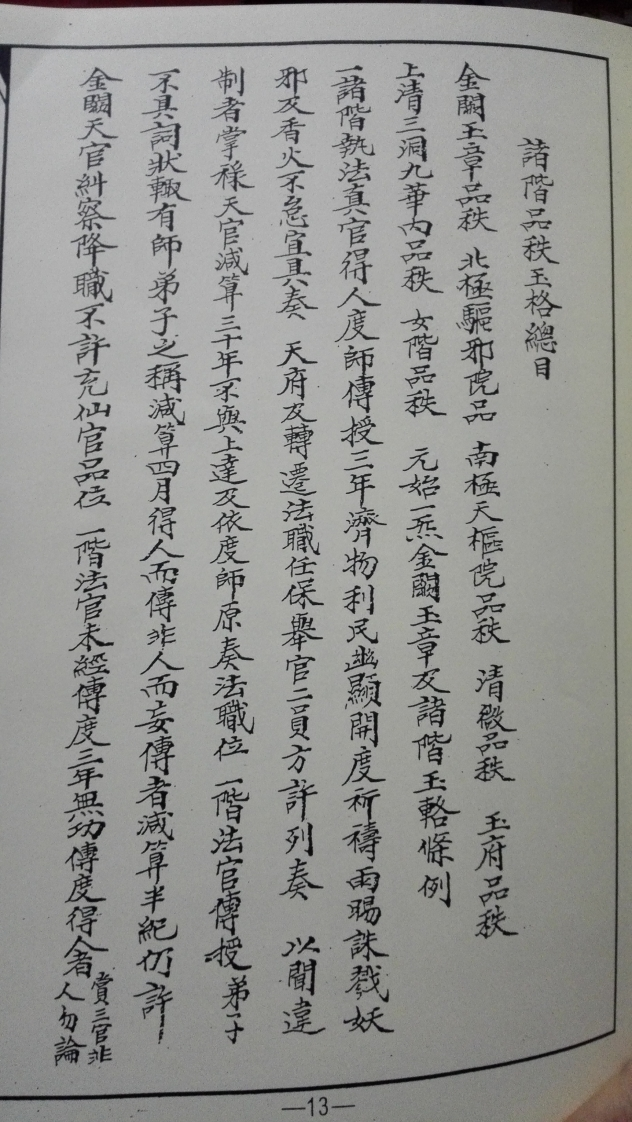 諸階品秩玉格總目
金闕玉章品秩 北極驅邪院品 南極天樞院品秩 清微品秩 玉府品秩
上清三洞九華內品秩 女階品秩 元始一炁金闕玉章及諸階玉輅條例
一諸階執法真官得人度師傳授三年濟物利民幽顯開度祈禱雨暘誅戮妖
邪及香火不怠宜具奏 天府及轉遷法職任保舉官二員方許列奏 以聞違
制者掌祿天官減算三十年不與上達及依度師原奏法職位 一階法官傳授弟子
不具詞狀輒有師弟子之稱減算四月得人而傳非人而妄傳者減算半紀仍許
金闕天官糾察降職不許充仙官品位 一階法官未經傳度三年無功傳度得人者賞三官非人勿論
—13—